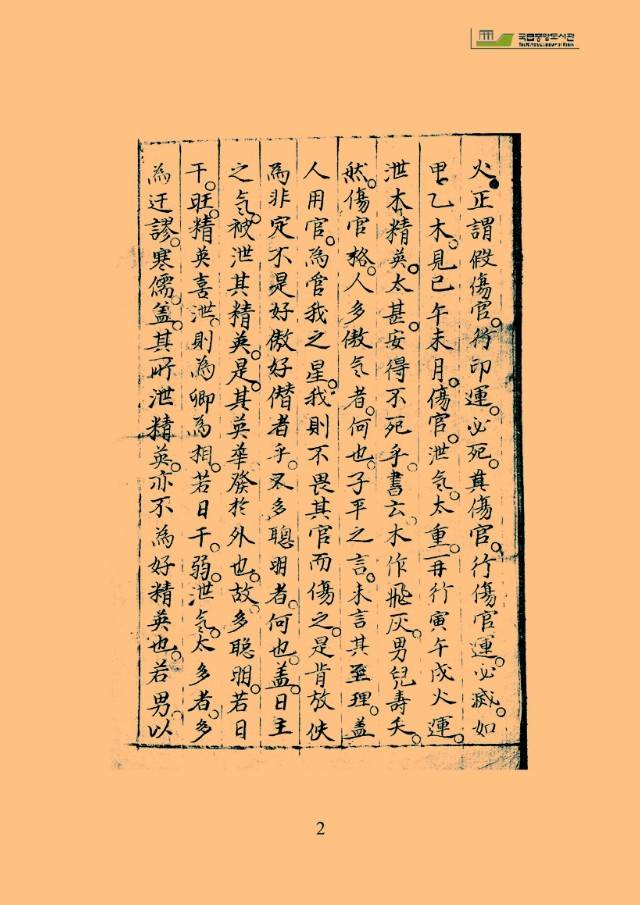 국립중앙도서관
火正謂假傷官。行印運。必死。眞傷官。行傷官運。必滅。如
甲乙木。見巳午未月。傷官。泄氣。太重。再行寅午戌火運。
泄本精英。太甚。安得不死乎。書云。木作飛灰。男兒壽夭。
然。傷官格。人多傲氣者。何也。子平之言。未言其至理。盖
人用官。為管我之星。我則不畏其官而傷之。是肯放伕
為非定不是好傲好僭者乎。又多聰明者何也。盖日主
之氣。被泄其精英。是其英華發於外也。故多聰明。若日
干。旺。精英喜泄。則為卿為相。若日干。弱。泄氣。太多者。多
為迂謬。寒儒。盖。其所泄精英。亦不為好精英也。若男以
2